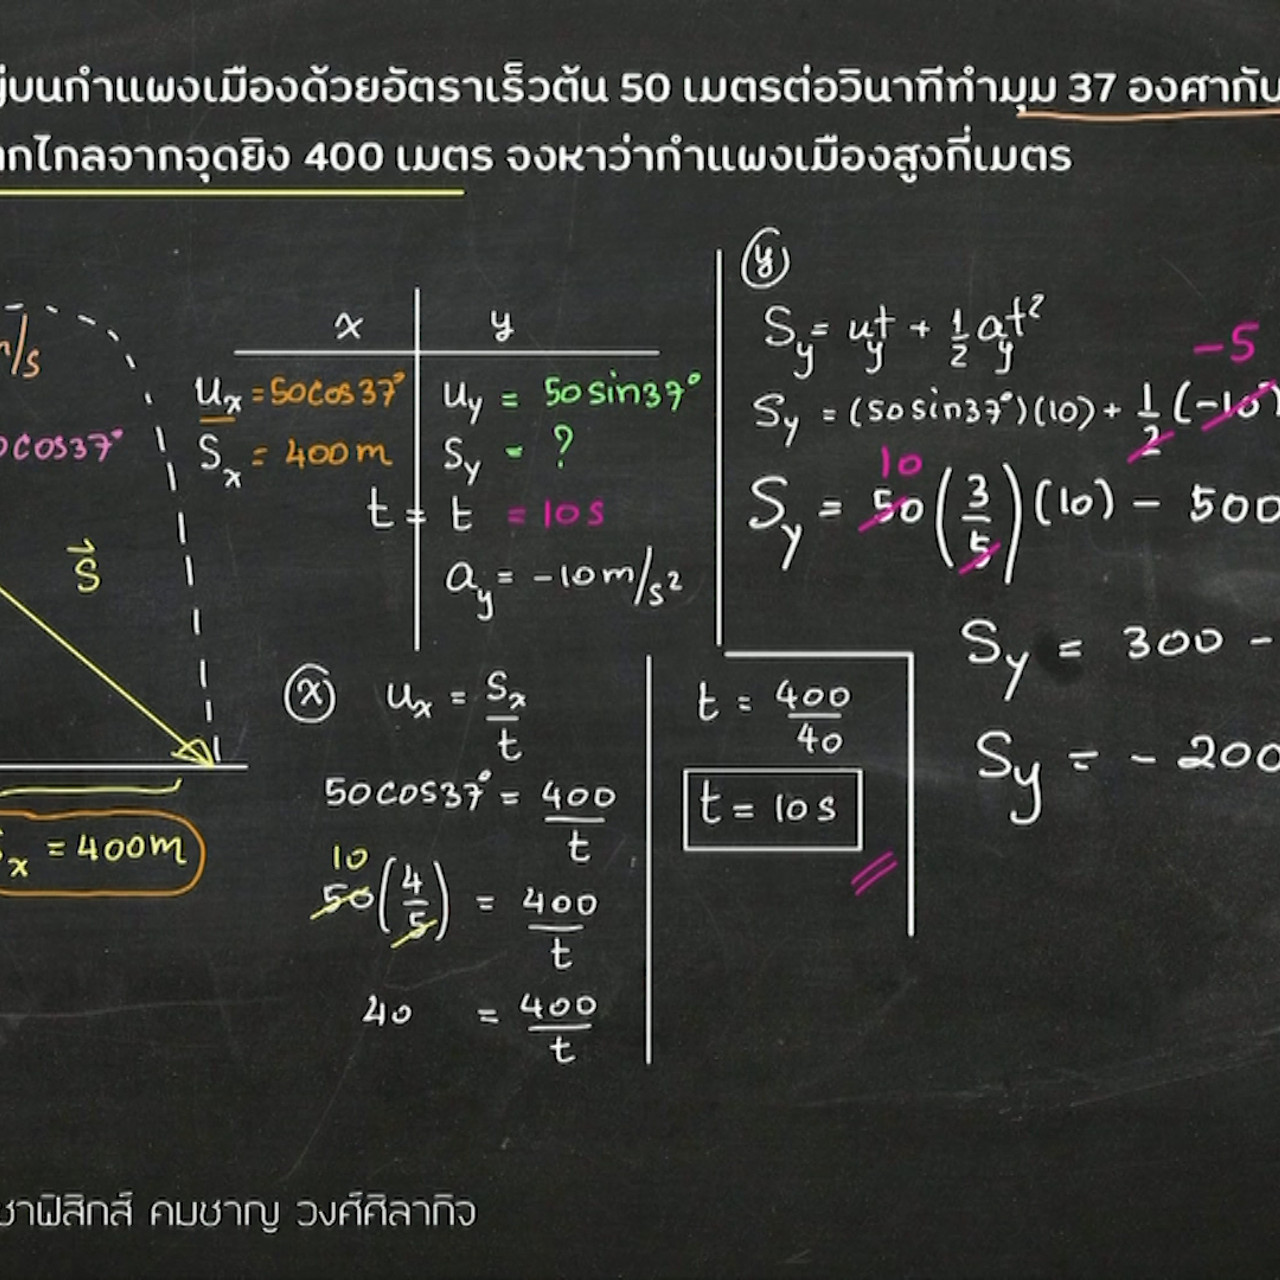 บนกำแพงเมืองด้วยอัตราเร็วต้น 50 เมตรต่อวินาทีทำมุม 37 องศากับ
กไกลจากจุดยิง 400 เมตร จงหาว่ากำแพงเมืองสูงกี่เมตร
m/s
cos37°
S⃗
Sx = 400m
x y
ux = 50cos37° uy = 50sin37°
Sx = 400m Sy = ?
t = t = 10s
ay = -10m/s²
ⓧ ux = Sx/t
50cos37° = 400/t
10
50(4/5) = 400/t
40 = 400/t
t = 400/40
t = 10s
ⓨ
Sy = uyt + 1/2 ayt²
-5
Sy = (50sin37°)(10) + 1/2(-10)
10
Sy = 50(3/5)(10) - 500
Sy = 300 -
Sy = - 200
ชาฟิสิกส์ คมชาญ วงศ์ศิลากิจ